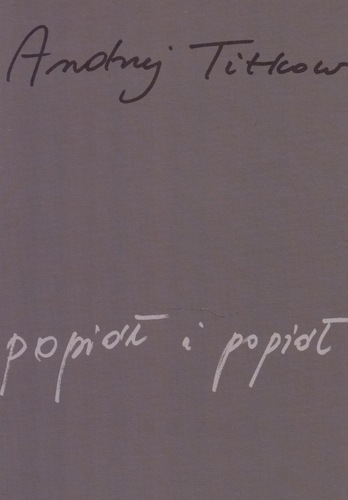 Andrzej Titkow
popiół i popiół